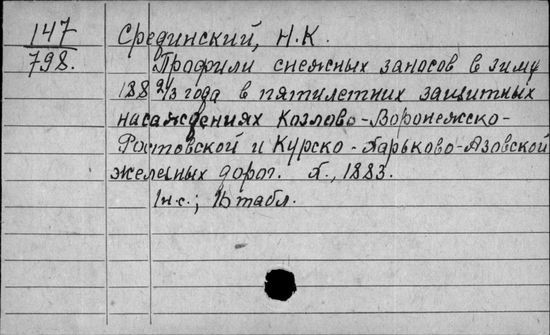 147
798.
Срединский, Н.К.
Профили снежных заносов в зиму
1882/3 года в пятилетних защитных
насаждениях Козлово-Воронежско-
Ростовской и Курско-Харьково-Азовской
железных дорог. Х., 1883.
1н.с.; табл.